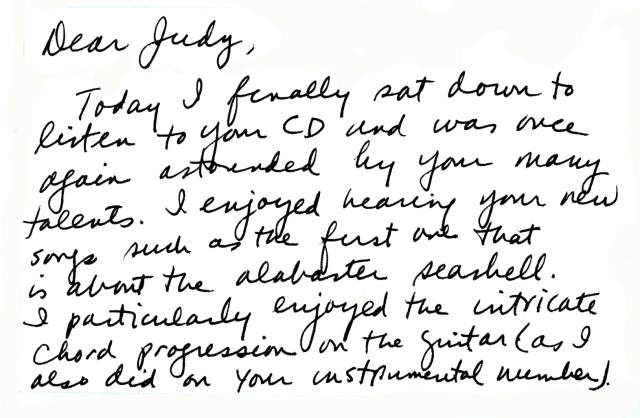 Dear Judy,
Today I finally sat down to
listen to your CD and was once
again astounded by your many
talents. I enjoyed hearing your new
songs such as the first one that
is about the alabaster seashell.
I particularly enjoyed the intricate
chord progression on the guitar (as I
also did on your instrumental number).